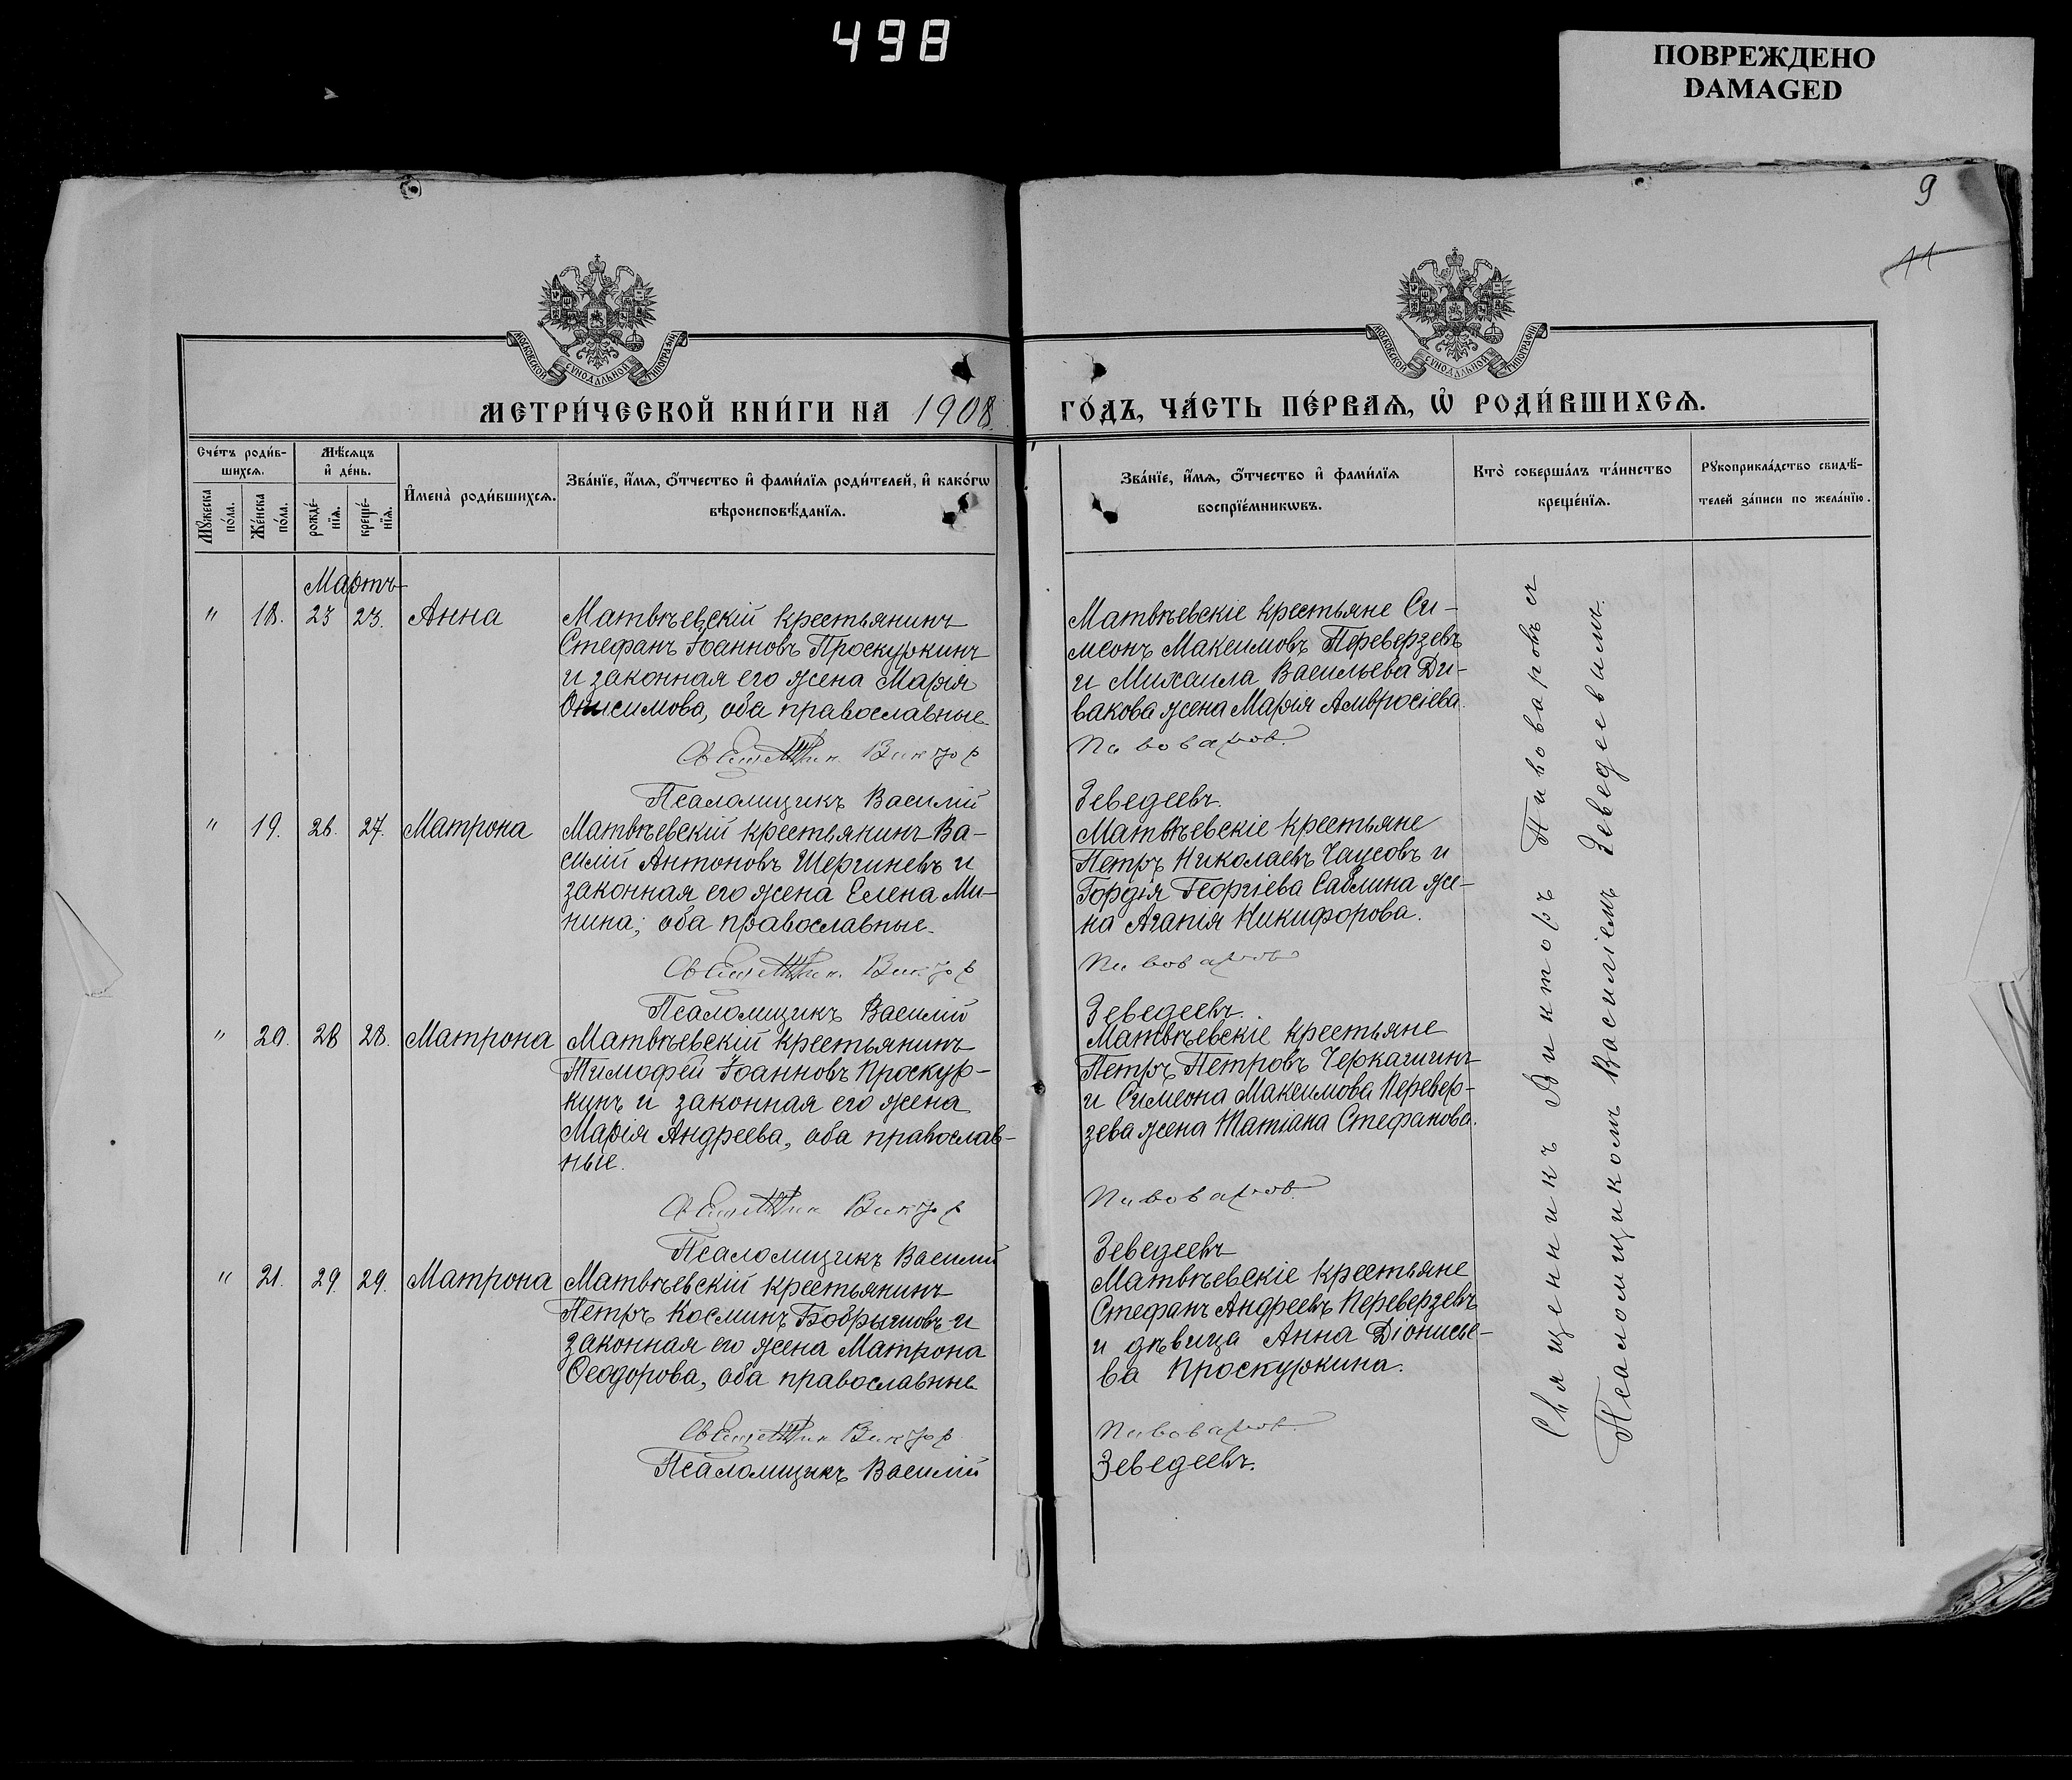 498
ПОВРЕЖДЕНО
DAMAGED
9
11
МОСКОВСКОЙ СУНОДАЛЬНОЙ ТИПОГРАФІИ
МОСКОВСКОЙ СУНОДАЛЬНОЙ ТИПОГРАФІИ
МЕТРИ́ЧЕСКОЙ КНИ́ГИ НА 1908
ГО́ДЪ, ЧА́СТЬ ПЕ́РВАѦ, Ѡ҆ РОДИ́ВШИХСѦ.
Сче́тъ роди́в-
шихсѧ.
Мѣ́сѧцъ
и҆ де́нь.
Мꙋ́жеска
по́ла.
Же́нска
по́ла.
рожде́-
нїѧ.
креще́-
нїѧ.
И҆мена̀ роди́вшихсѧ.
Зва́нїе, и҆́мѧ, ѻ҆́тчество и҆ фами́лїѧ роди́телей, и҆ како́гѡ
вѣроисповѣ́данїѧ.
Зва́нїе, и҆́мѧ, ѻ҆́тчество и҆ фами́лїѧ
воспрїе́мникѡвъ.
Кто̀ соверша́лъ та́инство
креще́нїѧ.
Рꙋкоприкла́дство свидѣ́-
телей за́писи по жела́нїю.
Мартъ
" 18. 23 23. Анна
Матвѣевскій крестьянинъ
Стефанъ Іоанновъ Проскуркинъ
и законная его жена Марія
Онисимова, оба православные.
Священник Виктор
Псаломщикъ Василій
Матвѣевскіе крестьяне Си-
меонъ Максимовъ Переверзевъ
и Михаила Васильева Ди-
вакова жена Марія Амвросіева.
Пивоваров.
Зеведеевъ.
" 19. 26. 27. Матрона
Матвѣевскій крестьянинъ Ва-
силій Антоновъ Шергиневъ и
законная его жена Елена Ми-
нина, оба православные.
Священник Виктор
Псаломщикъ Василій
Матвѣевскіе крестьяне
Петръ Николаевъ Чаусовъ и
Гордія Георгіева Саблина же-
на Агапія Никифорова.
Пивоваров
Зеведеевъ.
" 20. 28 28. Матрона
Матвѣевскій крестьянинъ
Тимофей Іоанновъ Проскур-
кинъ и законная его жена
Марія Андреева, оба православ-
ные.
Священник Виктор
Псаломщикъ Василій
Матвѣевскіе крестьяне
Петръ Петровъ Черкашинъ
и Симеона Максимова Перевер-
зева жена Татіана Стефанова.
Пивоваров.
Зеведеевъ
" 21. 29. 29. Матрона
Матвѣевскій крестьянинъ
Петръ Косминъ Бобрышовъ и
законная его жена Матрона
Ѳеодорова, оба православные
Священник Виктор
Псаломщикъ Василій
Матвѣевскіе крестьяне
Стефанъ Андреевъ Переверзевъ
и дѣвица Анна Діонисье-
ва Проскуркина.
Пивоваров.
Зеведеевъ.
Священникъ Викторъ Пивоваровъ съ
Псаломщикомъ Василіемъ Зеведеевымъ.